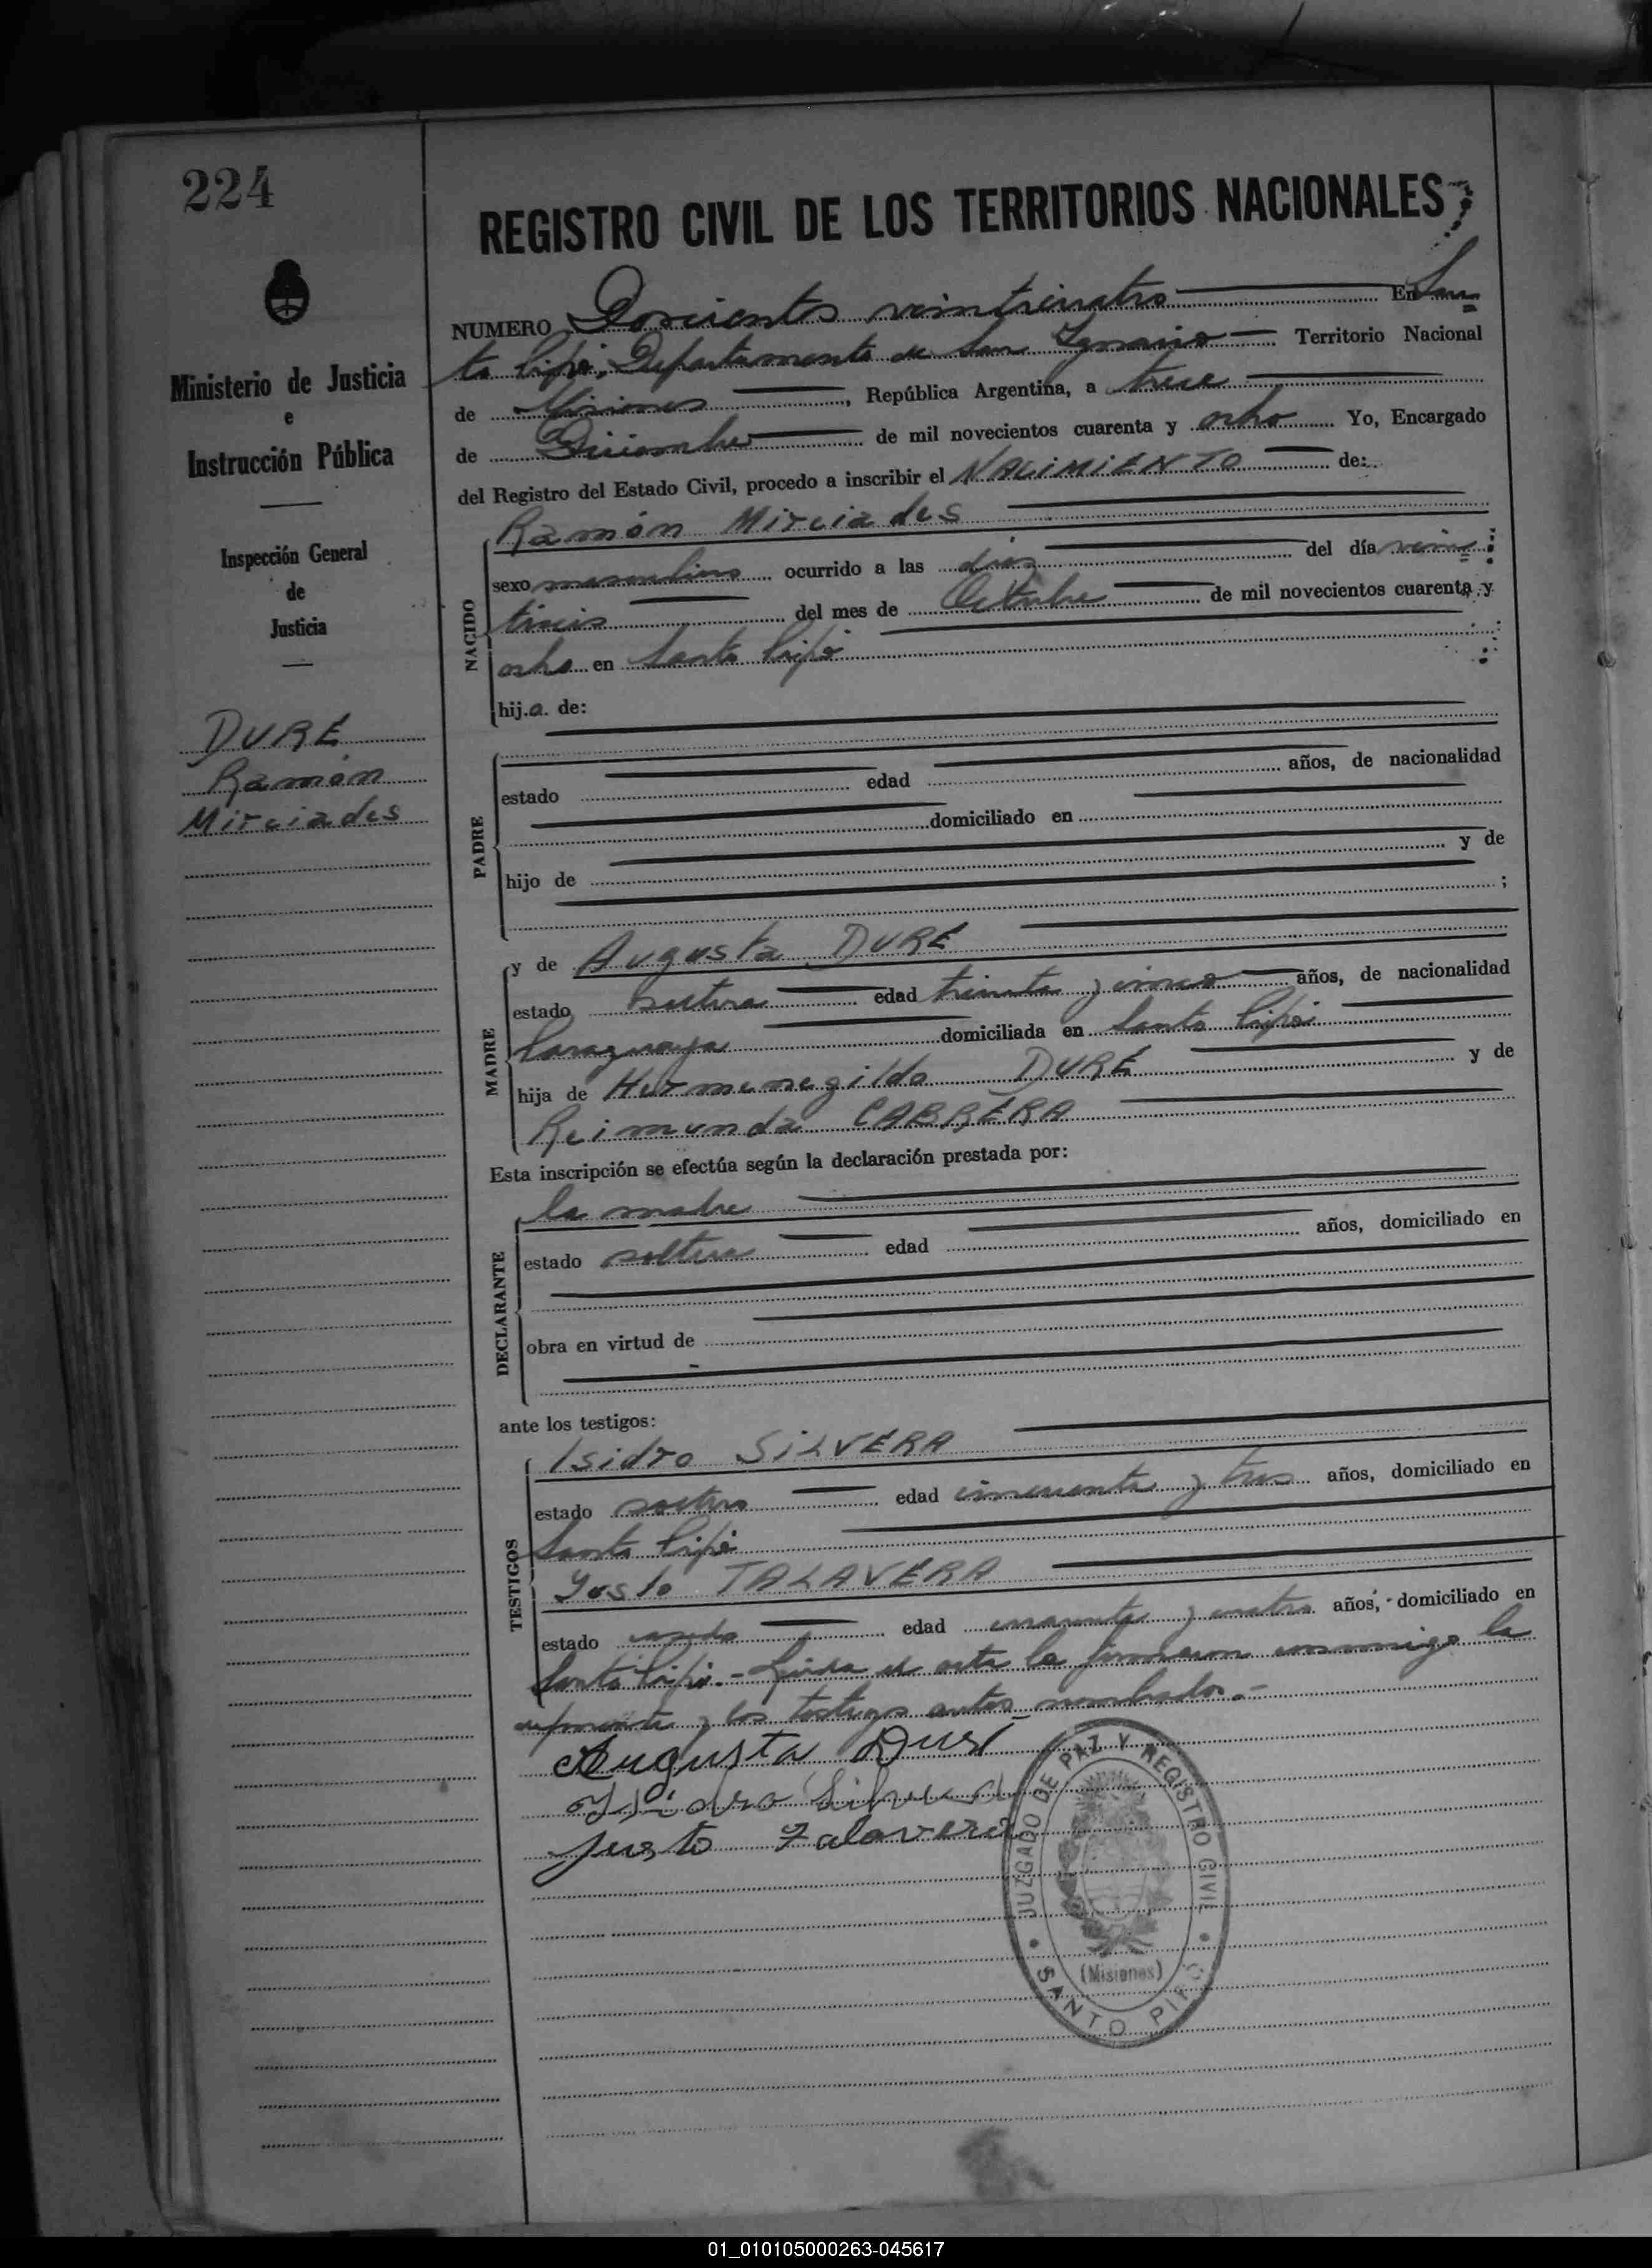 224
Ministerio de Justicia
e
Instrucción Pública
Inspección General
de
Justicia
DURÉ
Ramón
Mirciades
REGISTRO CIVIL DE LOS TERRITORIOS NACIONALES
NUMERO Doscientos veinticuatro En San=
to Pipó, Departamento de San Ignacio Territorio Nacional
de Misiones, República Argentina, a trece
de Diciembre de mil novecientos cuarenta y ocho Yo, Encargado
del Registro del Estado Civil, procedo a inscribir el NACIMIENTO de:
Ramón Mirciades
NACIDO
sexo masculino ocurrido a las diez del día vein=
tiseis del mes de Octubre de mil novecientos cuarenta y
ocho en Santo Pipó
hij.a. de:
PADRE
estado edad años, de nacionalidad
domiciliado en
hijo de y de
;
MADRE
y de Augusta DURÉ
estado soltera edad treinta y cinco años, de nacionalidad
Paraguaya domiciliada en Santo Pipó
hija de Hermenegildo DURÉ y de
Reimunda CABRERA
Esta inscripción se efectúa según la declaración prestada por:
DECLARANTE
la madre
estado soltera edad años, domiciliado en
obra en virtud de
ante los testigos:
TESTIGOS
Isidro SILVERA
estado soltero edad cincuenta y tres años, domiciliado en
Santo Pipó
Justo TALAVERA
estado casado edad cuarenta y cuatro años, domiciliado en
Santo Pipó.- Leída el acta la firmaron conmigo la
exponente y los testigos antes nombrados.-
Augusta Duré
Isidro Silvera
Justo Talavera
JUZGADO DE PAZ Y REGISTRO CIVIL
(Misiones)
SANTO PIPÓ
01_010105000263-045617